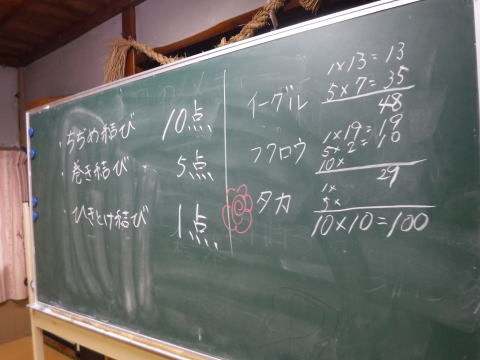 ・ちぢめ結び 10点
・巻き結び 5点
・ひきとけ結び 1点
イーグル
1×13=13
5×7=35
48
フクロウ
1×19=19
5×2=10
10×
29
タカ
1×
5×
10×10=100